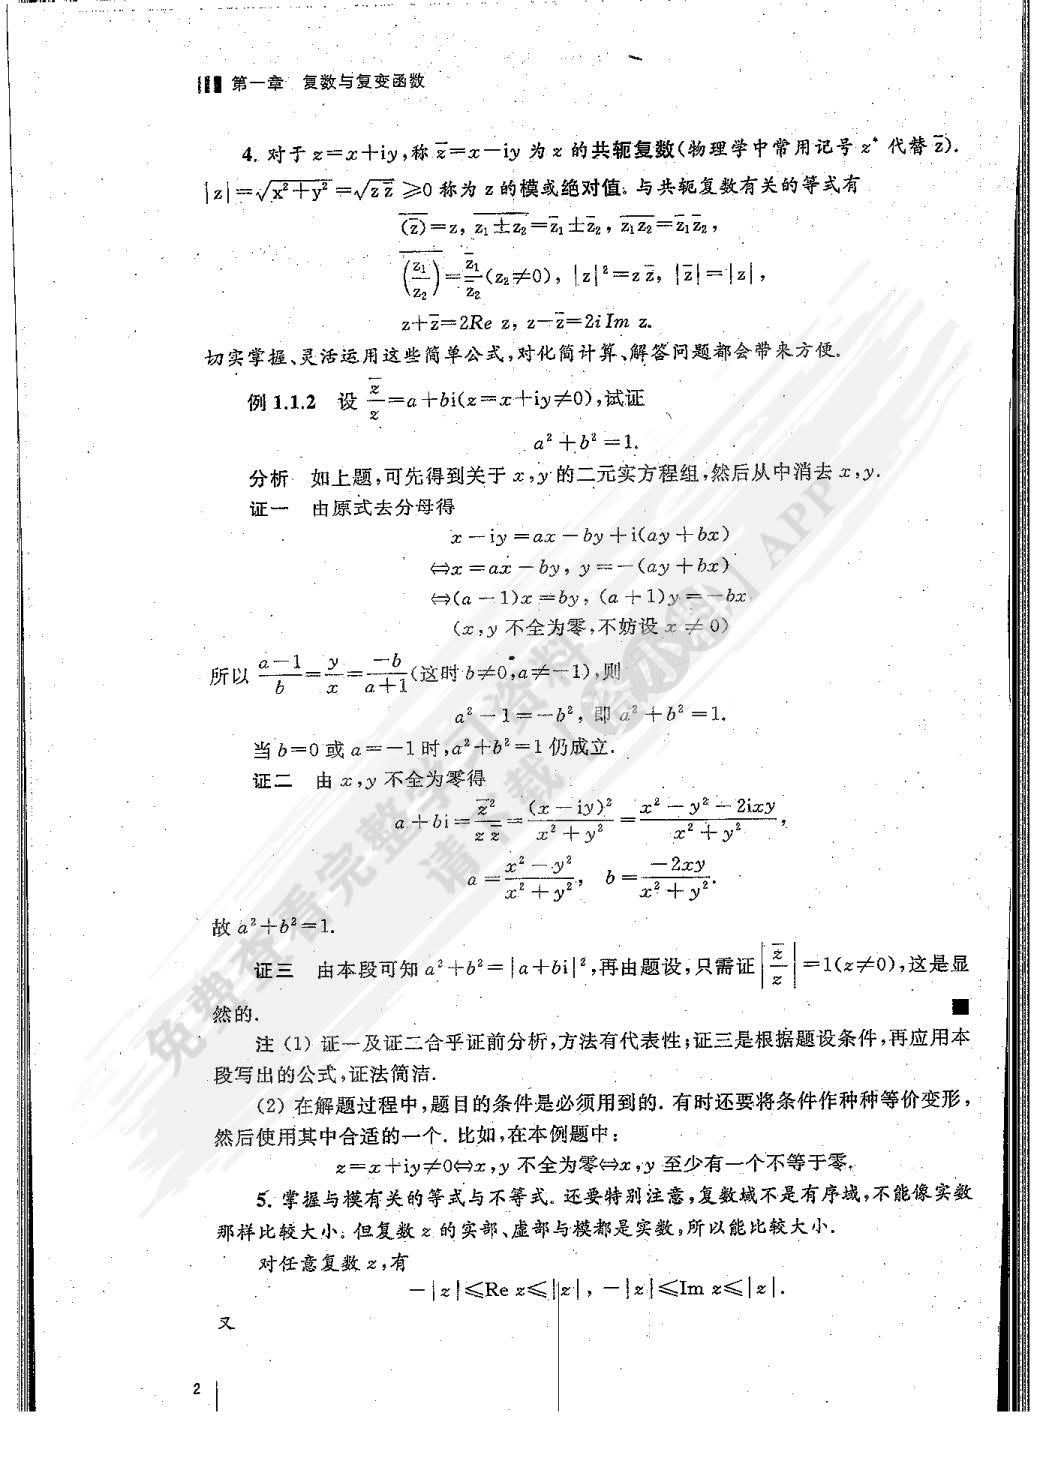 第一章 复数与复变函数
4. 对于 z=x+iy,称 z̅=x−iy 为 z 的共轭复数(物理学中常用记号 z* 代替 z̅).
|z|=√(x²+y²)=√(z z̅)≥0 称为 z 的模或绝对值. 与共轭复数有关的等式有
\overline{(z̅)}=z, \overline{z₁±z₂}=z̅₁±z̅₂, \overline{z₁z₂}=z̅₁z̅₂,
\overline{(z₁/z₂)}=z̅₁/z̅₂(z₂≠0), |z|²=z z̅, |z̅|=|z|,
z+z̅=2Re z, z−z̅=2i Im z.
切实掌握、灵活运用这些简单公式,对化简计算、解答问题都会带来方便.
例 1.1.2 设 z̅/z=a+bi(z=x+iy≠0),试证
a²+b²=1.
分析 如上题,可先得到关于 x,y 的二元实方程组,然后从中消去 x,y.
证一 由原式去分母得
x−iy=ax−by+i(ay+bx)
⇔x=ax−by, y=−(ay+bx)
⇔(a−1)x=by, (a+1)y=−bx
(x,y 不全为零,不妨设 x≠0)
所以 (a−1)/b=y/x=−b/(a+1)(这时 b≠0,a≠−1),则
a²−1=−b², 即 a²+b²=1.
当 b=0 或 a=−1 时,a²+b²=1 仍成立.
证二 由 x,y 不全为零得
a+bi=z̅²/(z z̅)=(x−iy)²/(x²+y²)=(x²−y²−2ixy)/(x²+y²),
a=(x²−y²)/(x²+y²), b=−2xy/(x²+y²).
故 a²+b²=1.
证三 由本段可知 a²+b²=|a+bi|²,再由题设,只需证 |z̅/z|=1(z≠0),这是显
然的. ■
注 (1) 证一及证二合乎证前分析,方法有代表性;证三是根据题设条件,再应用本
段写出的公式,证法简洁.
(2) 在解题过程中,题目的条件是必须用到的. 有时还要将条件作种种等价变形,
然后使用其中合适的一个. 比如,在本例题中:
z=x+iy≠0⇔x,y 不全为零⇔x,y 至少有一个不等于零.
5. 掌握与模有关的等式与不等式. 还要特别注意,复数域不是有序域,不能像实数
那样比较大小. 但复数 z 的实部、虚部与模都是实数,所以能比较大小.
对任意复数 z,有
−|z|≤Re z≤|z|, −|z|≤Im z≤|z|.
又
2
免费查看完整学习资料
请下载
APP